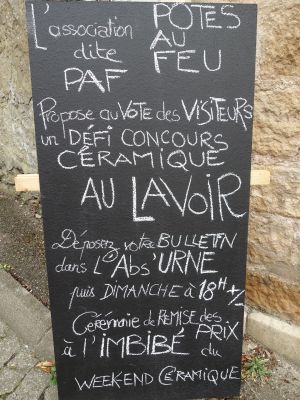 L'association POTES
dite AU
PAF FEU
Propose au VOTE des VISITEURS
un DÉFI CONCOURS
CÉRAMIQUE
AU LAVOIR
Déposez votre BULLETIN
dans L'Abs'URNE
puis DIMANCHE à 18H +/-
Cérémonie de REMISE des PRIX
à l'IMBIBÉ du
WEEK-END CÉRAMIQUE